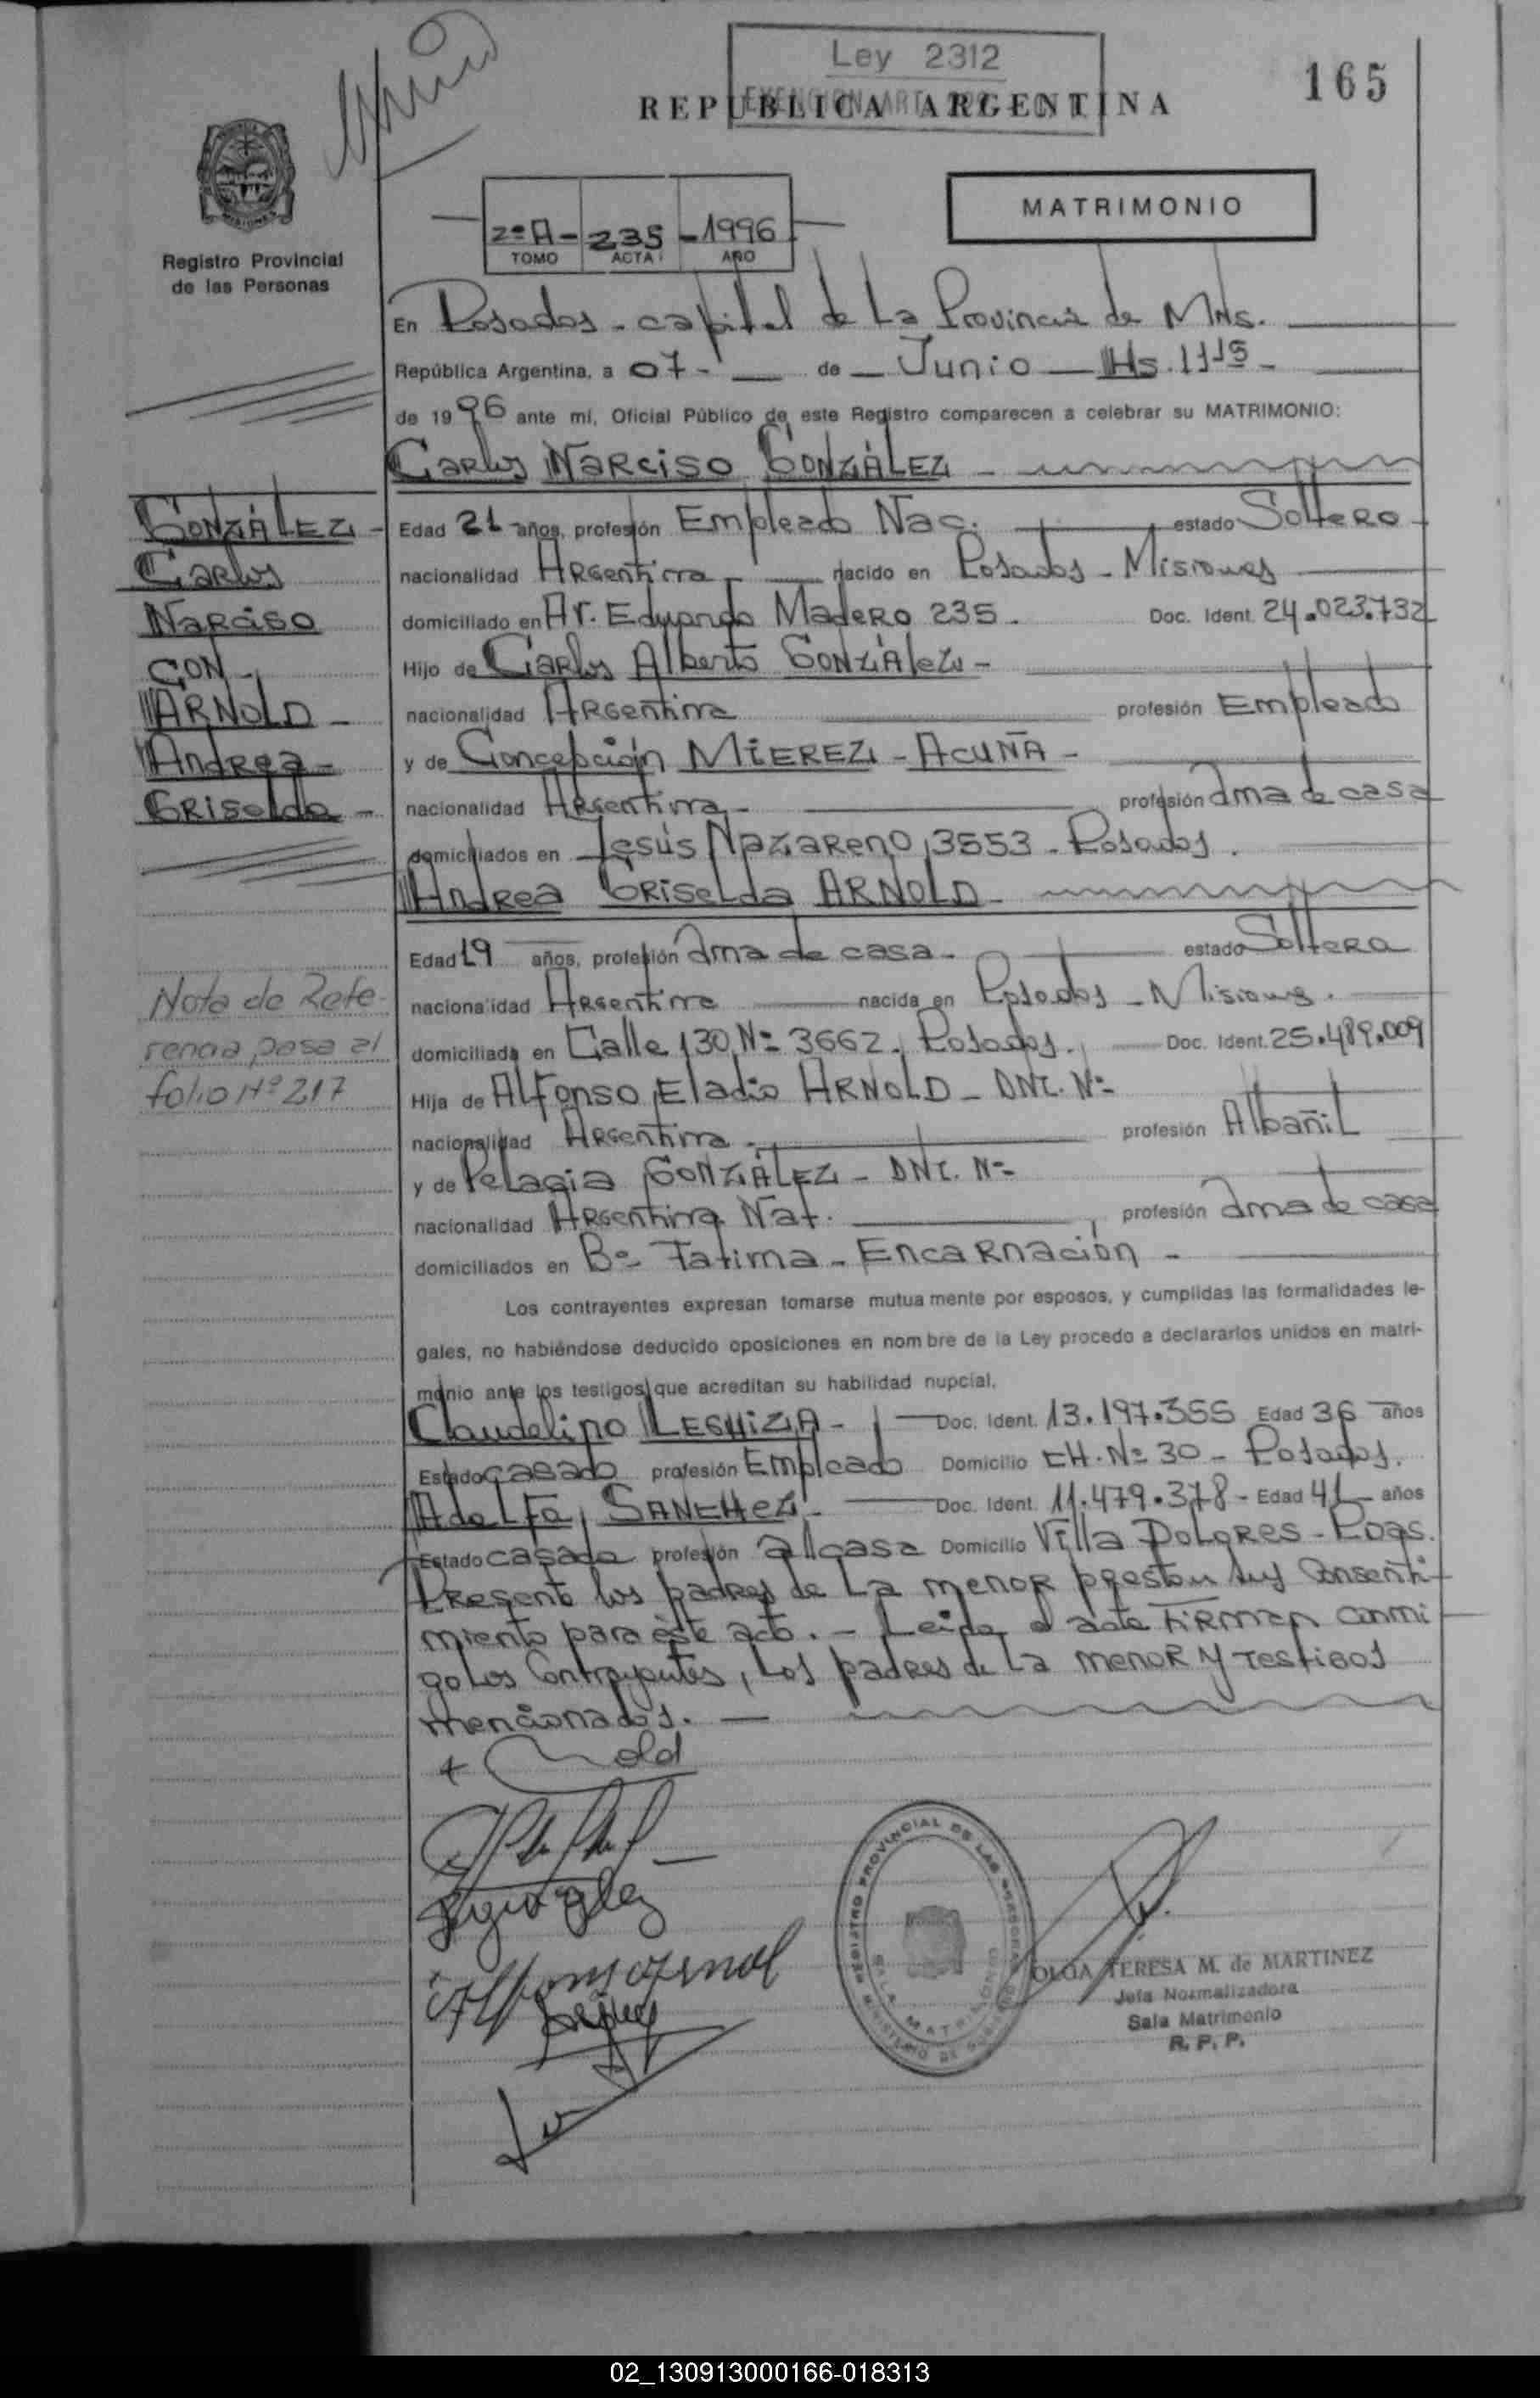 Ley 2312
165
REPUBLICA ARGENTINA
MATRIMONIO
2º A - 235 - 1996
TOMO ACTA AÑO
Registro Provincial
de las Personas
En Posadas - capital de La Provincia de Mns.
República Argentina, a 07 - de Junio Hs. 11 15 -
de 1996 ante mí, Oficial Público de este Registro comparecen a celebrar su MATRIMONIO:
Carlos Narciso GONZÁLEZ -
GONZÁLEZ -
Carlos
Narciso
CON -
ARNOLD -
Andrea -
Griselda -
Edad 21 años, profesión Empleado Nac. estado Soltero
nacionalidad Argentina - nacido en Posadas - Misiones
domiciliado en Av. Eduardo Madero 235 - Doc. Ident. 24.023.732
Hijo de Carlos Alberto GONZÁLEZ -
nacionalidad Argentina profesión Empleado
y de Concepción MIEREZ - ACUÑA -
nacionalidad Argentina - profesión ama de casa
domiciliados en Jesús Nazareno 3553 - Posadas.
Andrea Griselda ARNOLD -
Edad 19 años, profesión ama de casa - estado Soltera
nacionalidad Argentina nacida en Posadas - Misiones.
domiciliada en Calle 130 Nº 3662. Posadas. Doc. Ident. 25.489.009
Hija de Alfonso Eladio ARNOLD - DNI. Nº
nacionalidad Argentina - profesión Albañil
y de Pelagia GONZÁLEZ - DNI. Nº
nacionalidad Argentina Nat. profesión ama de casa
domiciliados en Bº Fatima - Encarnación -
Nota de Refe-
rencia pasa al
folio Nº 217
Los contrayentes expresan tomarse mutuamente por esposos, y cumplidas las formalidades le-
gales, no habiéndose deducido oposiciones en nombre de la Ley procedo a declararlos unidos en matri-
monio ante los testigos que acreditan su habilidad nupcial.
Claudelino LESHIZA - Doc. Ident. 13.197.355 Edad 36 años
Estado casado profesión Empleado Domicilio CH. Nº 30 - Posadas.
Adelfa SANCHEZ - Doc. Ident. 11.479.378 - Edad 41 años
Estado casada profesión a/casa Domicilio Villa Dolores - Pdas.
Presente los padres de La menor prestan sus Consenti-
miento para éste acto. - Leida el acta Firman conmi
go los Contrayentes, Los padres de La menor y testigos
mencionados. -
REGISTRO PROVINCIAL DE LAS PERSONAS
SALA MATRIMONIO
MINISTERIO DE GOBIERNO
OLGA TERESA M. de MARTINEZ
Jefa Normalizadora
Sala Matrimonio
R. P. P.
02_130913000166-018313